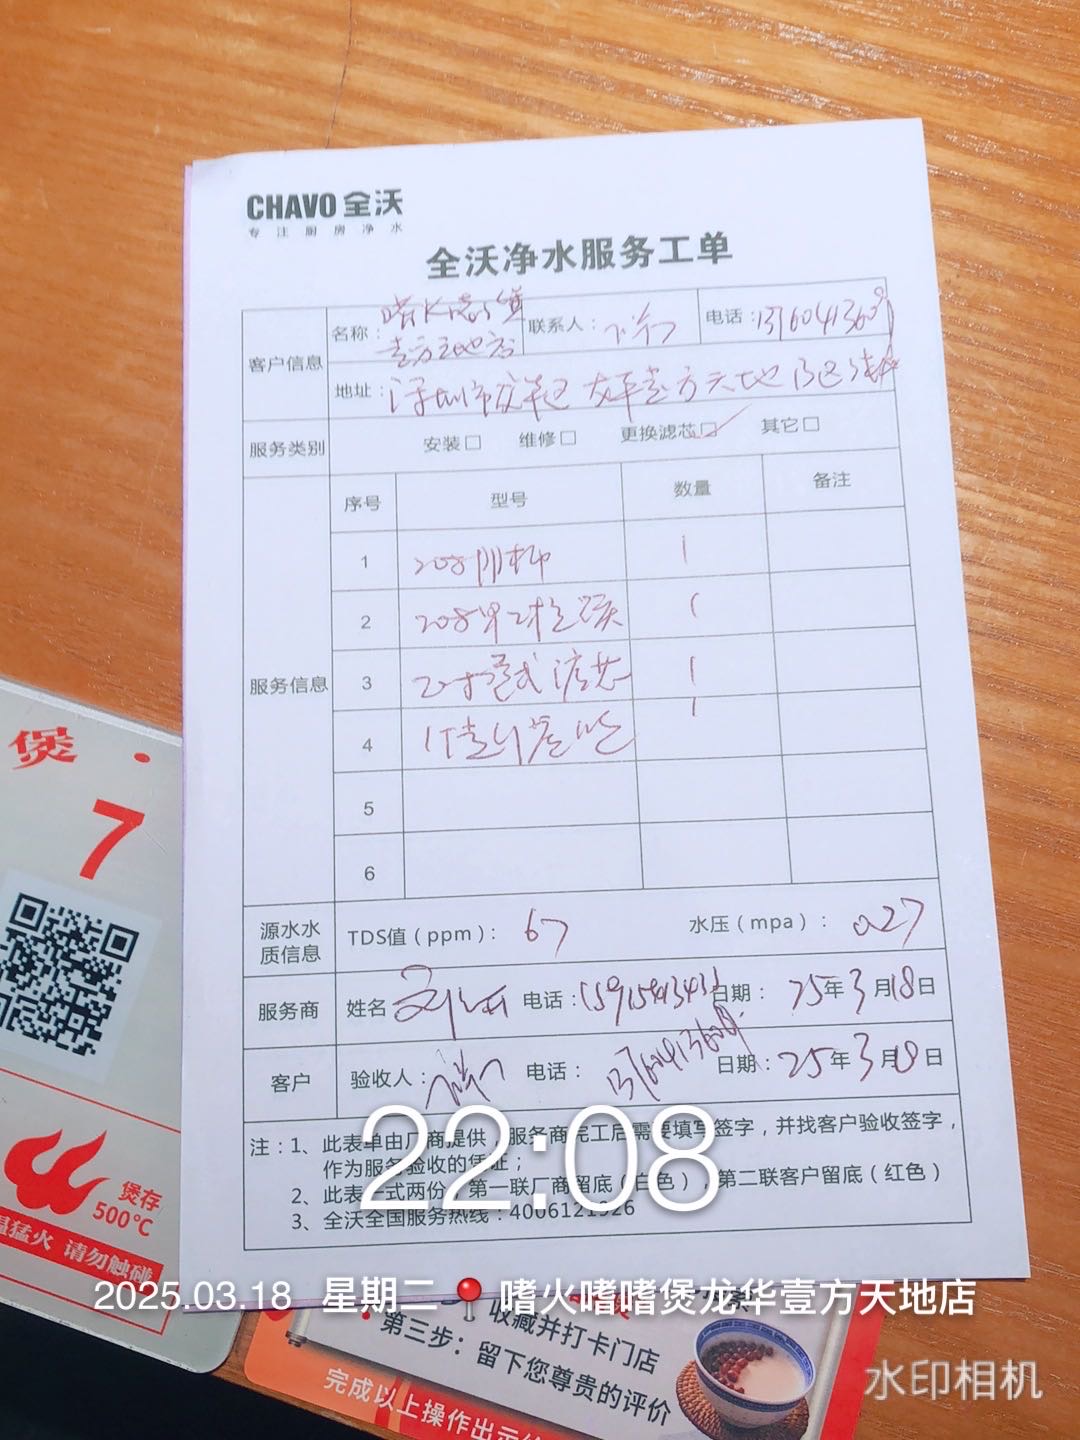 CHAVO 全沃
专注厨房净水
全沃净水服务工单
客户信息
名称：
壹方天地店
联系人：
电话：13760413608
地址：深圳市龙华区 龙华壹方天地B区
服务类别 安装□ 维修□ 更换滤芯□ 其它□
服务信息
序号 型号 数量 备注
1 1
2 1
3 滤芯 1
4 1
5
6
源水水质信息
TDS值（ppm）：67 水压（mpa）：0.27
服务商 姓名 电话： 日期：25年3月18日
客户 验收人： 电话：13760413608 日期：25年3月18日
注：1、此表单由厂商提供，服务商完工后需要填写签字，并找客户验收签字，
作为服务验收的凭证；
2、此表一式两份，第一联厂商留底（白色），第二联客户留底（红色）
3、全沃全国服务热线：4006121926
22:08
2025.03.18 星期二 嗜火嗜嗜煲龙华壹方天地店
水印相机
煲·
7
煲存
500℃
温猛火 请勿触碰
收藏并打卡门店
第三步：留下您尊贵的评价
完成以上操作出示给